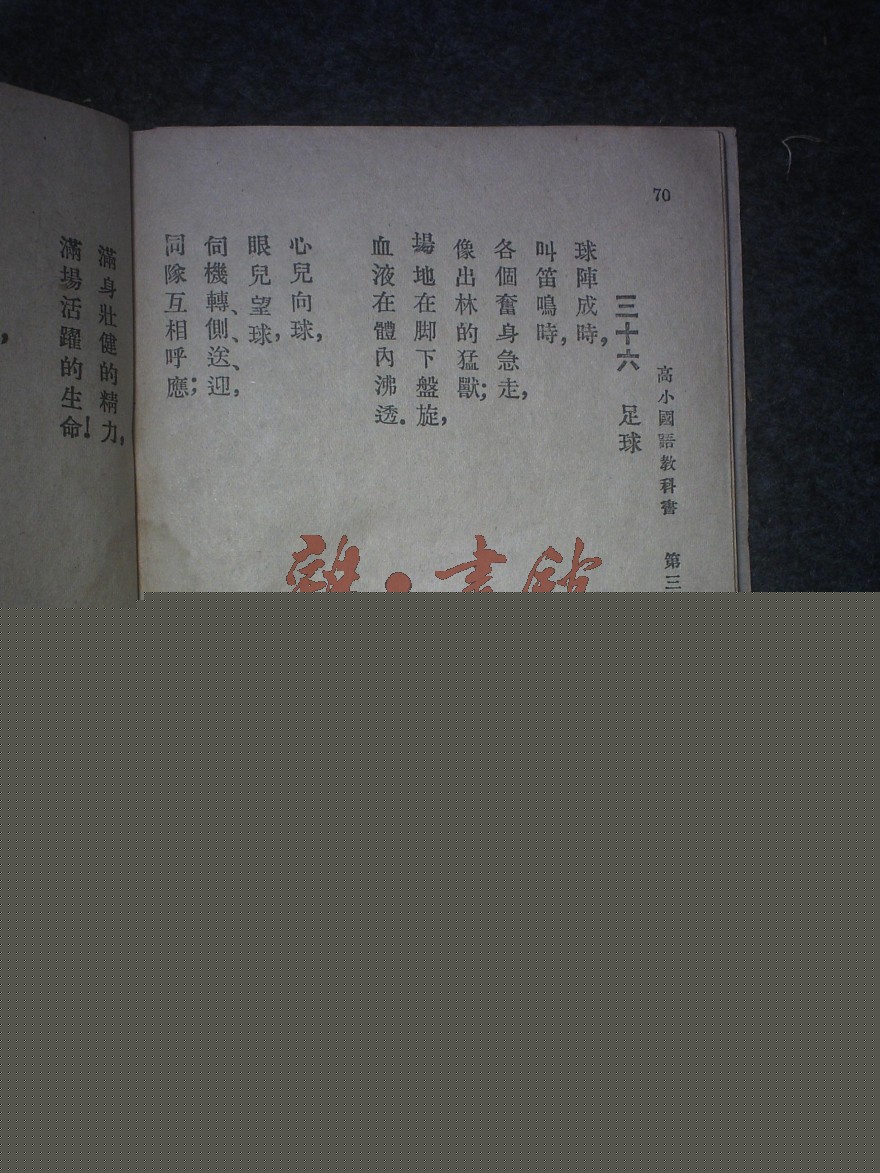 70
高小國語教科書 第三
三十六 足球
球陣成時，
叫笛鳴時，
各個奮身急走，
像出林的猛獸；
場地在脚下盤旋，
血液在體內沸透．
心兒向球，
眼兒望球，
伺機轉、側、送、迎，
同隊互相呼應；
滿身壯健的精力，
滿場活躍的生命！